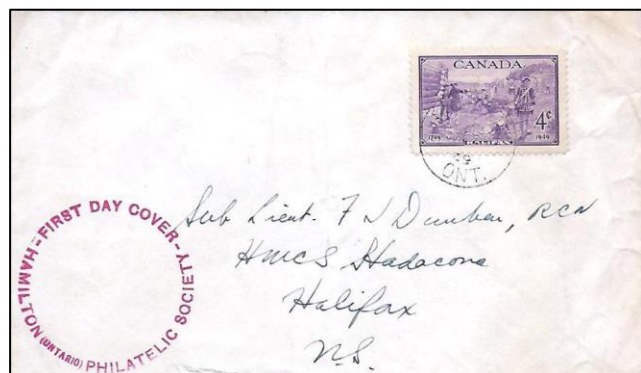 CANADA
4¢
1749 HALIFAX 1949
49
ONT.
FIRST DAY COVER - HAMILTON (ONTARIO) PHILATELIC SOCIETY -
Sub Lieut. F J Dunbar, RCN
HMCS Stadacona
Halifax
N.S.